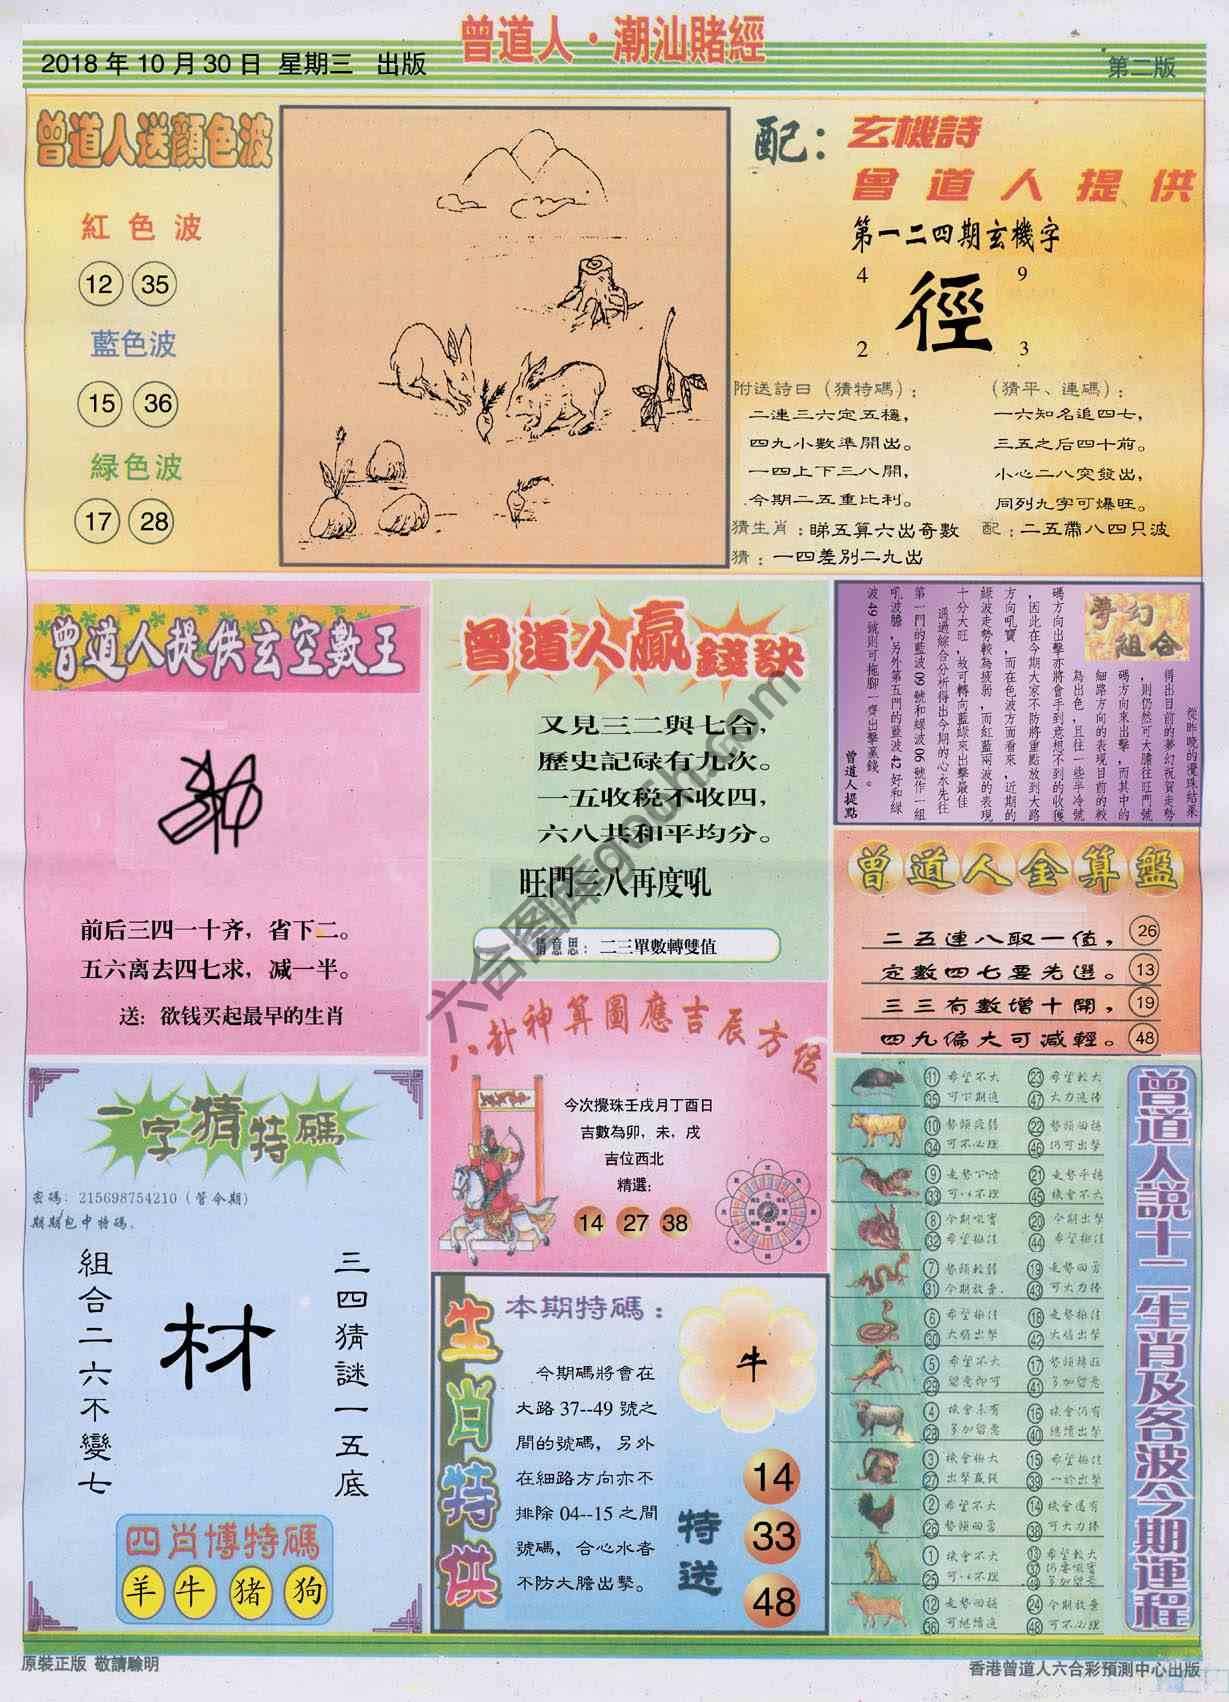 曾道人·潮汕賭經
2018年10月30日 星期三 出版
第二版
曾道人送顏色波
紅色波
12 35
藍色波
15 36
緑色波
17 28
配：玄機詩
曾道人提供
第一二四期玄機字
4 9
徑
2 3
附送詩曰（猜特碼）：
二連三六定五穩，
四九小數準開出。
一四上下三八開，
今期二五重比利。
（猜平、連碼）：
一六知名追四七，
三五之后四十前。
小心二八突發出，
同列九字可爆旺。
猜生肖：睇五算六出奇數
配：二五帶八四只波
猜：一四差別二九出
曾道人提供玄空數王
前后三四一十齐，省下二。
五六离去四七求，减一半。
送：欲钱买起最早的生肖
曾道人贏錢訣
又見三二與七合，
歷史記碌有九次。
一五收税不收四，
六八共和平均分。
旺門三八再度吼
猜意思：二三單數轉雙值
夢幻組合
從昨晚的攪珠結果
得出目前的夢幻祝賀走勢
，則仍然可大膽往旺門號
碼方向來出擊，而其中的
細路方向的表現目前的較
為出色，且往一些半冷號
碼方向出擊亦將會手到意想不到的收獲
，因此在今期大家不防將重點放到大路
方向吼寶，而在色波方面看來，近期的
緑波走勢較為疲弱，而紅藍兩波的表現
十分大旺，故可轉向藍緑來出擊最佳
通過綜合分析得出今期的心水先往
第一門的藍波09號和緑波06號作一組
吼波膽，另外第五門的藍波42好和緑
波49號則可拖腳一齊出擊贏錢。
曾道人提點
曾道人金算盤
二五連八取一值， 26
定數四七要先選。 13
三三有數增十開， 19
四九偏大可減輕。 48
八卦神算圖應吉辰方位
今次攪珠壬戌月丁酉日
吉數為卯，未，戌
吉位西北
精選：
14 27 38
一字猜特碼
密碼：215698754210（管令期）
期期包中特碼。
三四猜謎一五底
材
組合二六不變七
四肖博特碼
羊 牛 猪 狗
生肖特供
本期特碼：
今期碼將會在
大路37--49號之
間的號碼，另外
在細路方向亦不
排除04--15之間
號碼，合心水者
不防大膽出擊。
牛
特送
14
33
48
曾道人説十二生肖及各波今期運程
11 希望不大 23 希望較大
35 可下期追 47 大力追捧
10 勢頭疲弱 22 勢頭回揚
34 可不必理 46 仍可出擊
9 21
33 45 機會不大
8 今期吼實 20 今期出擊
32 希望極佳 44 希望極佳
7 勢頭較弱 19 走勢回勇
31 今期放棄 43 可大力捧
6 希望極佳 18 走勢極佳
30 大膽出擊 42 大膽出擊
5 希望不大 17
29 留意即可 41 多加留意
4 機會未有 16 機會仍有
28 多加留意 40 繼續出擊
3 機會極大 15 希望極佳
27 出擊贏錢 39 一於出擊
2 希望不大 14 機會還有
26 勢頭回勇 38 可大力捧
1 機會不大 13 希望較大
25 37
49 多加留意
12 走勢回揚 24 今期放棄
36 可繼續追 48 可不必理
原裝正版 敬請騐明
香港曾道人六合彩預測中心出版
六合图库gochi.com